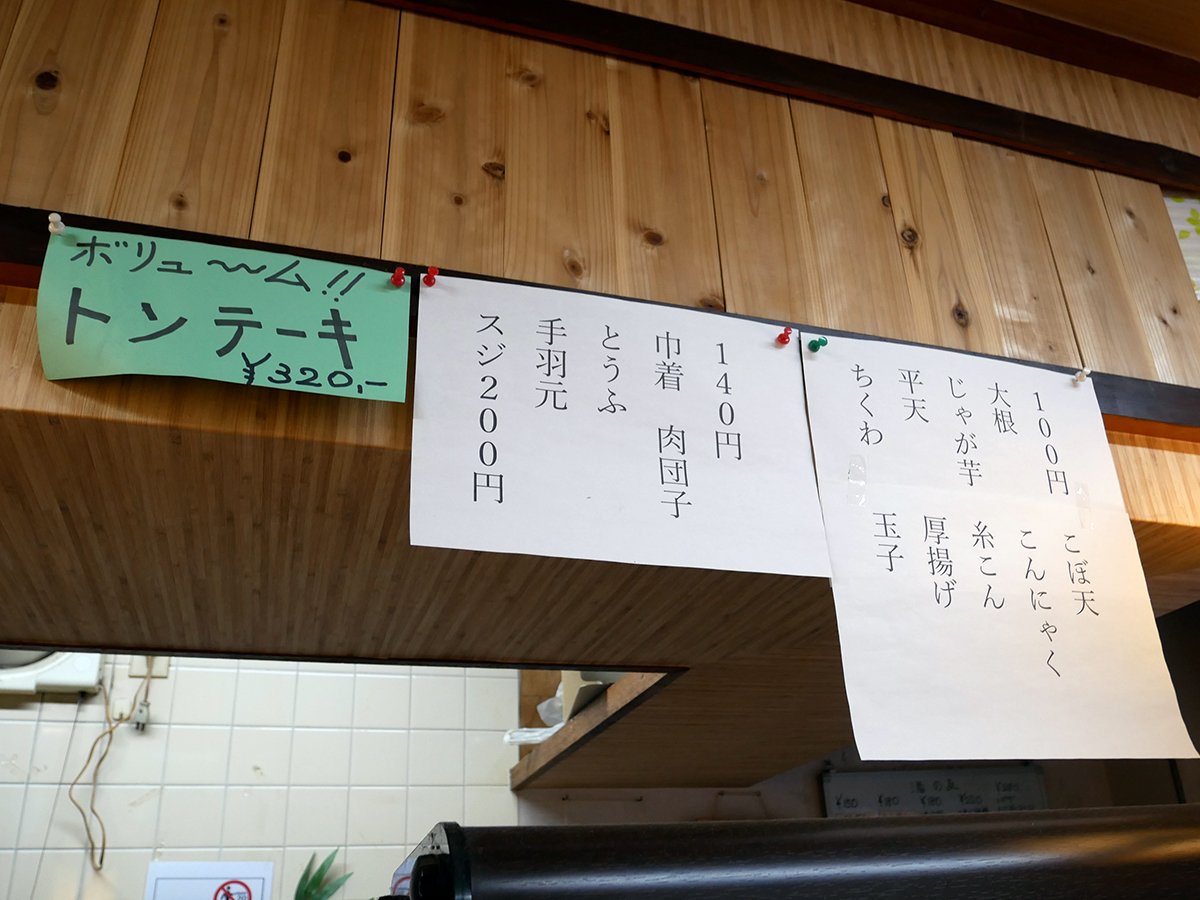 ボリュ〜ム!!
トンテーキ
¥320,-
100円 こぼ天
大根 こんにゃく
じゃが芋 糸こん
平天 厚揚げ
ちくわ 玉子
140円
巾着 肉団子
とうふ
手羽元
スジ200円